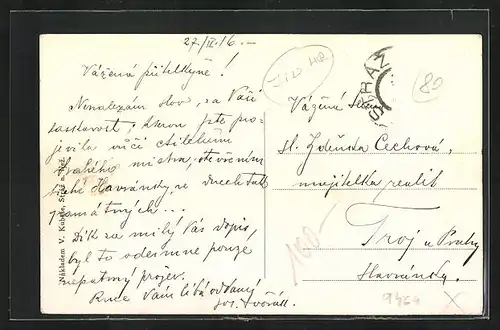 27/IX.16.–
Vážená přítelkyně!
Nenalézám slov, za Vaši
laskavost, kterou jste pro-
jevila vůči ctitelům
mistra, otevřením
Havránky, ve dnech tak
památných...
Dík za milý Vás dopis,
byl to odemne pouze
nepatrný projev.
Ruce Vám líbá oddaný
Jos. Dvořák.
Nákladem V. Kubáše,
SRAZ
80
Vážená Slečna
sl. Zdeňka Čechová,
majitelka realit
Troj u Prahy
Havránka.
160
9464